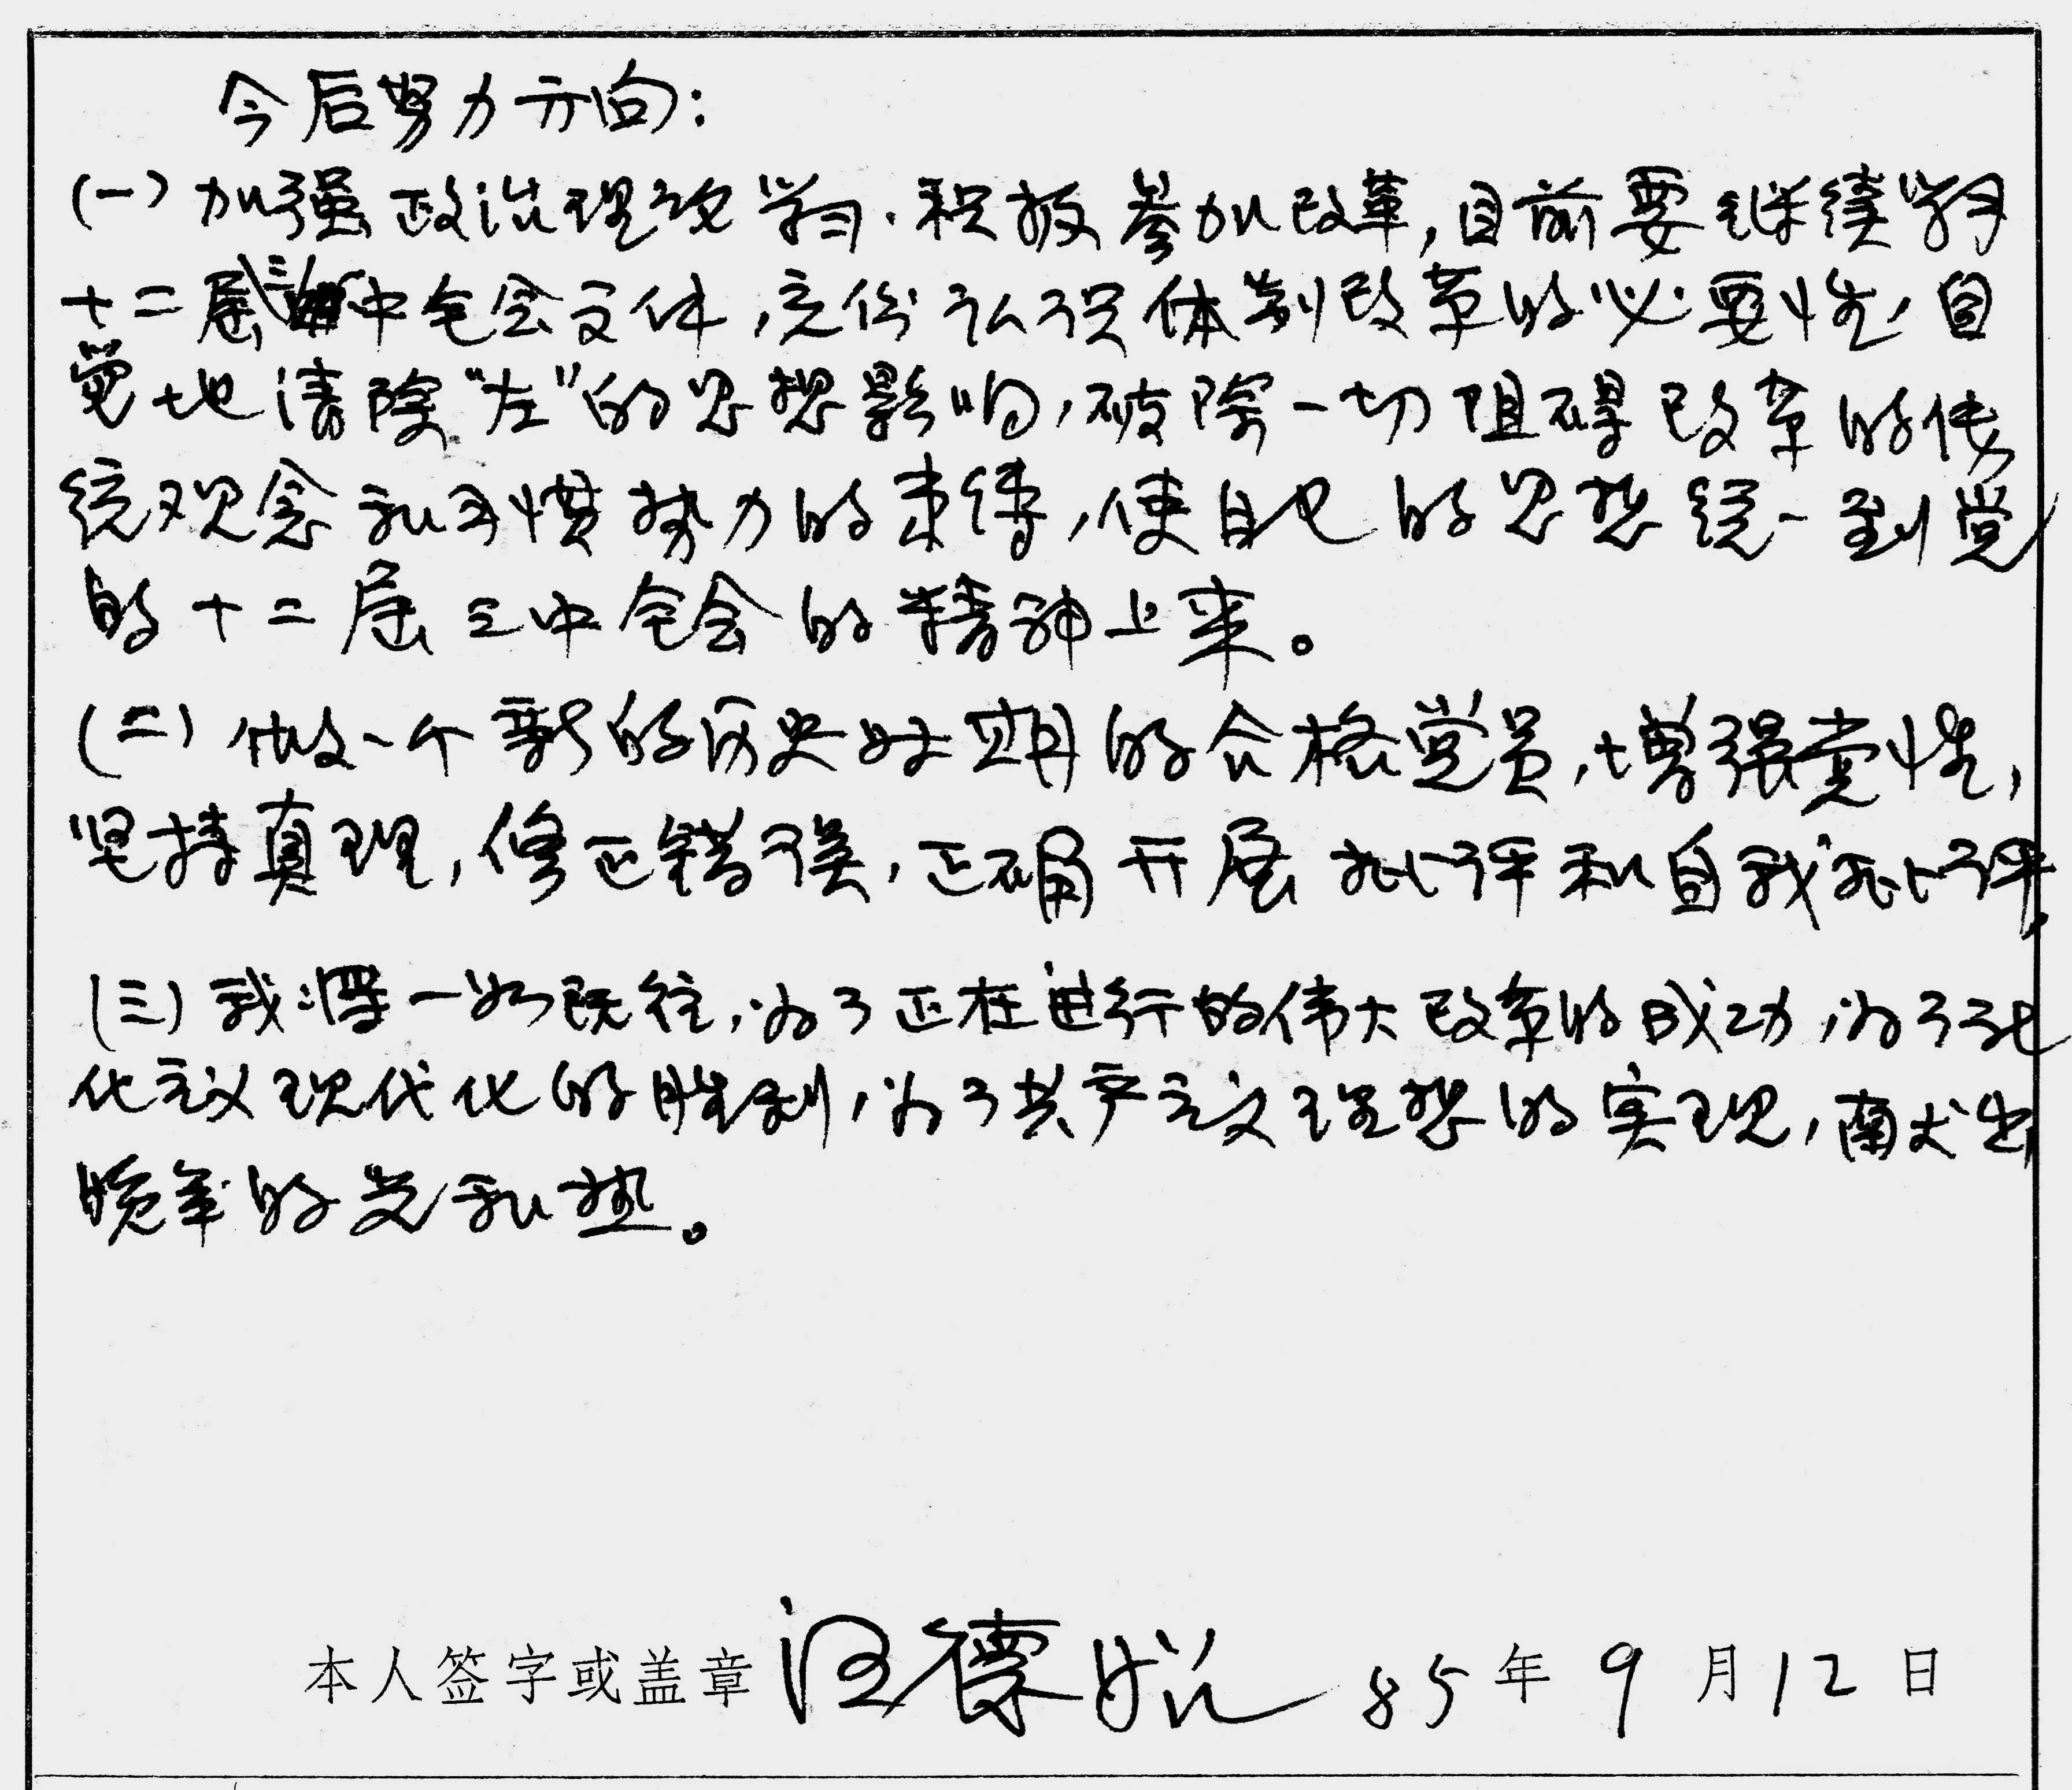 今后努力方向：
（一）加强政治理论学习．积极参加改革，目前要继续学习
十二届三中全会文件，充份认识体制改革的必要性，自
觉地清除“左”的思想影响，破除一切阻碍改革的传
统观念和习惯势力的束缚，使自己的思想统一到党
的十二届三中全会的精神上来。
（二）做一个新的历史时期的合格党员，增强党性，
坚持真理，修正错误，正确开展批评和自我批评，
（三）我将一如既往，为了正在进行的伟大改革的成功，为了
化主义现代化的胜利，为了共产主义理想的实现，献出
晚年的光和热。
本人签字或盖章 德 85年9月12日